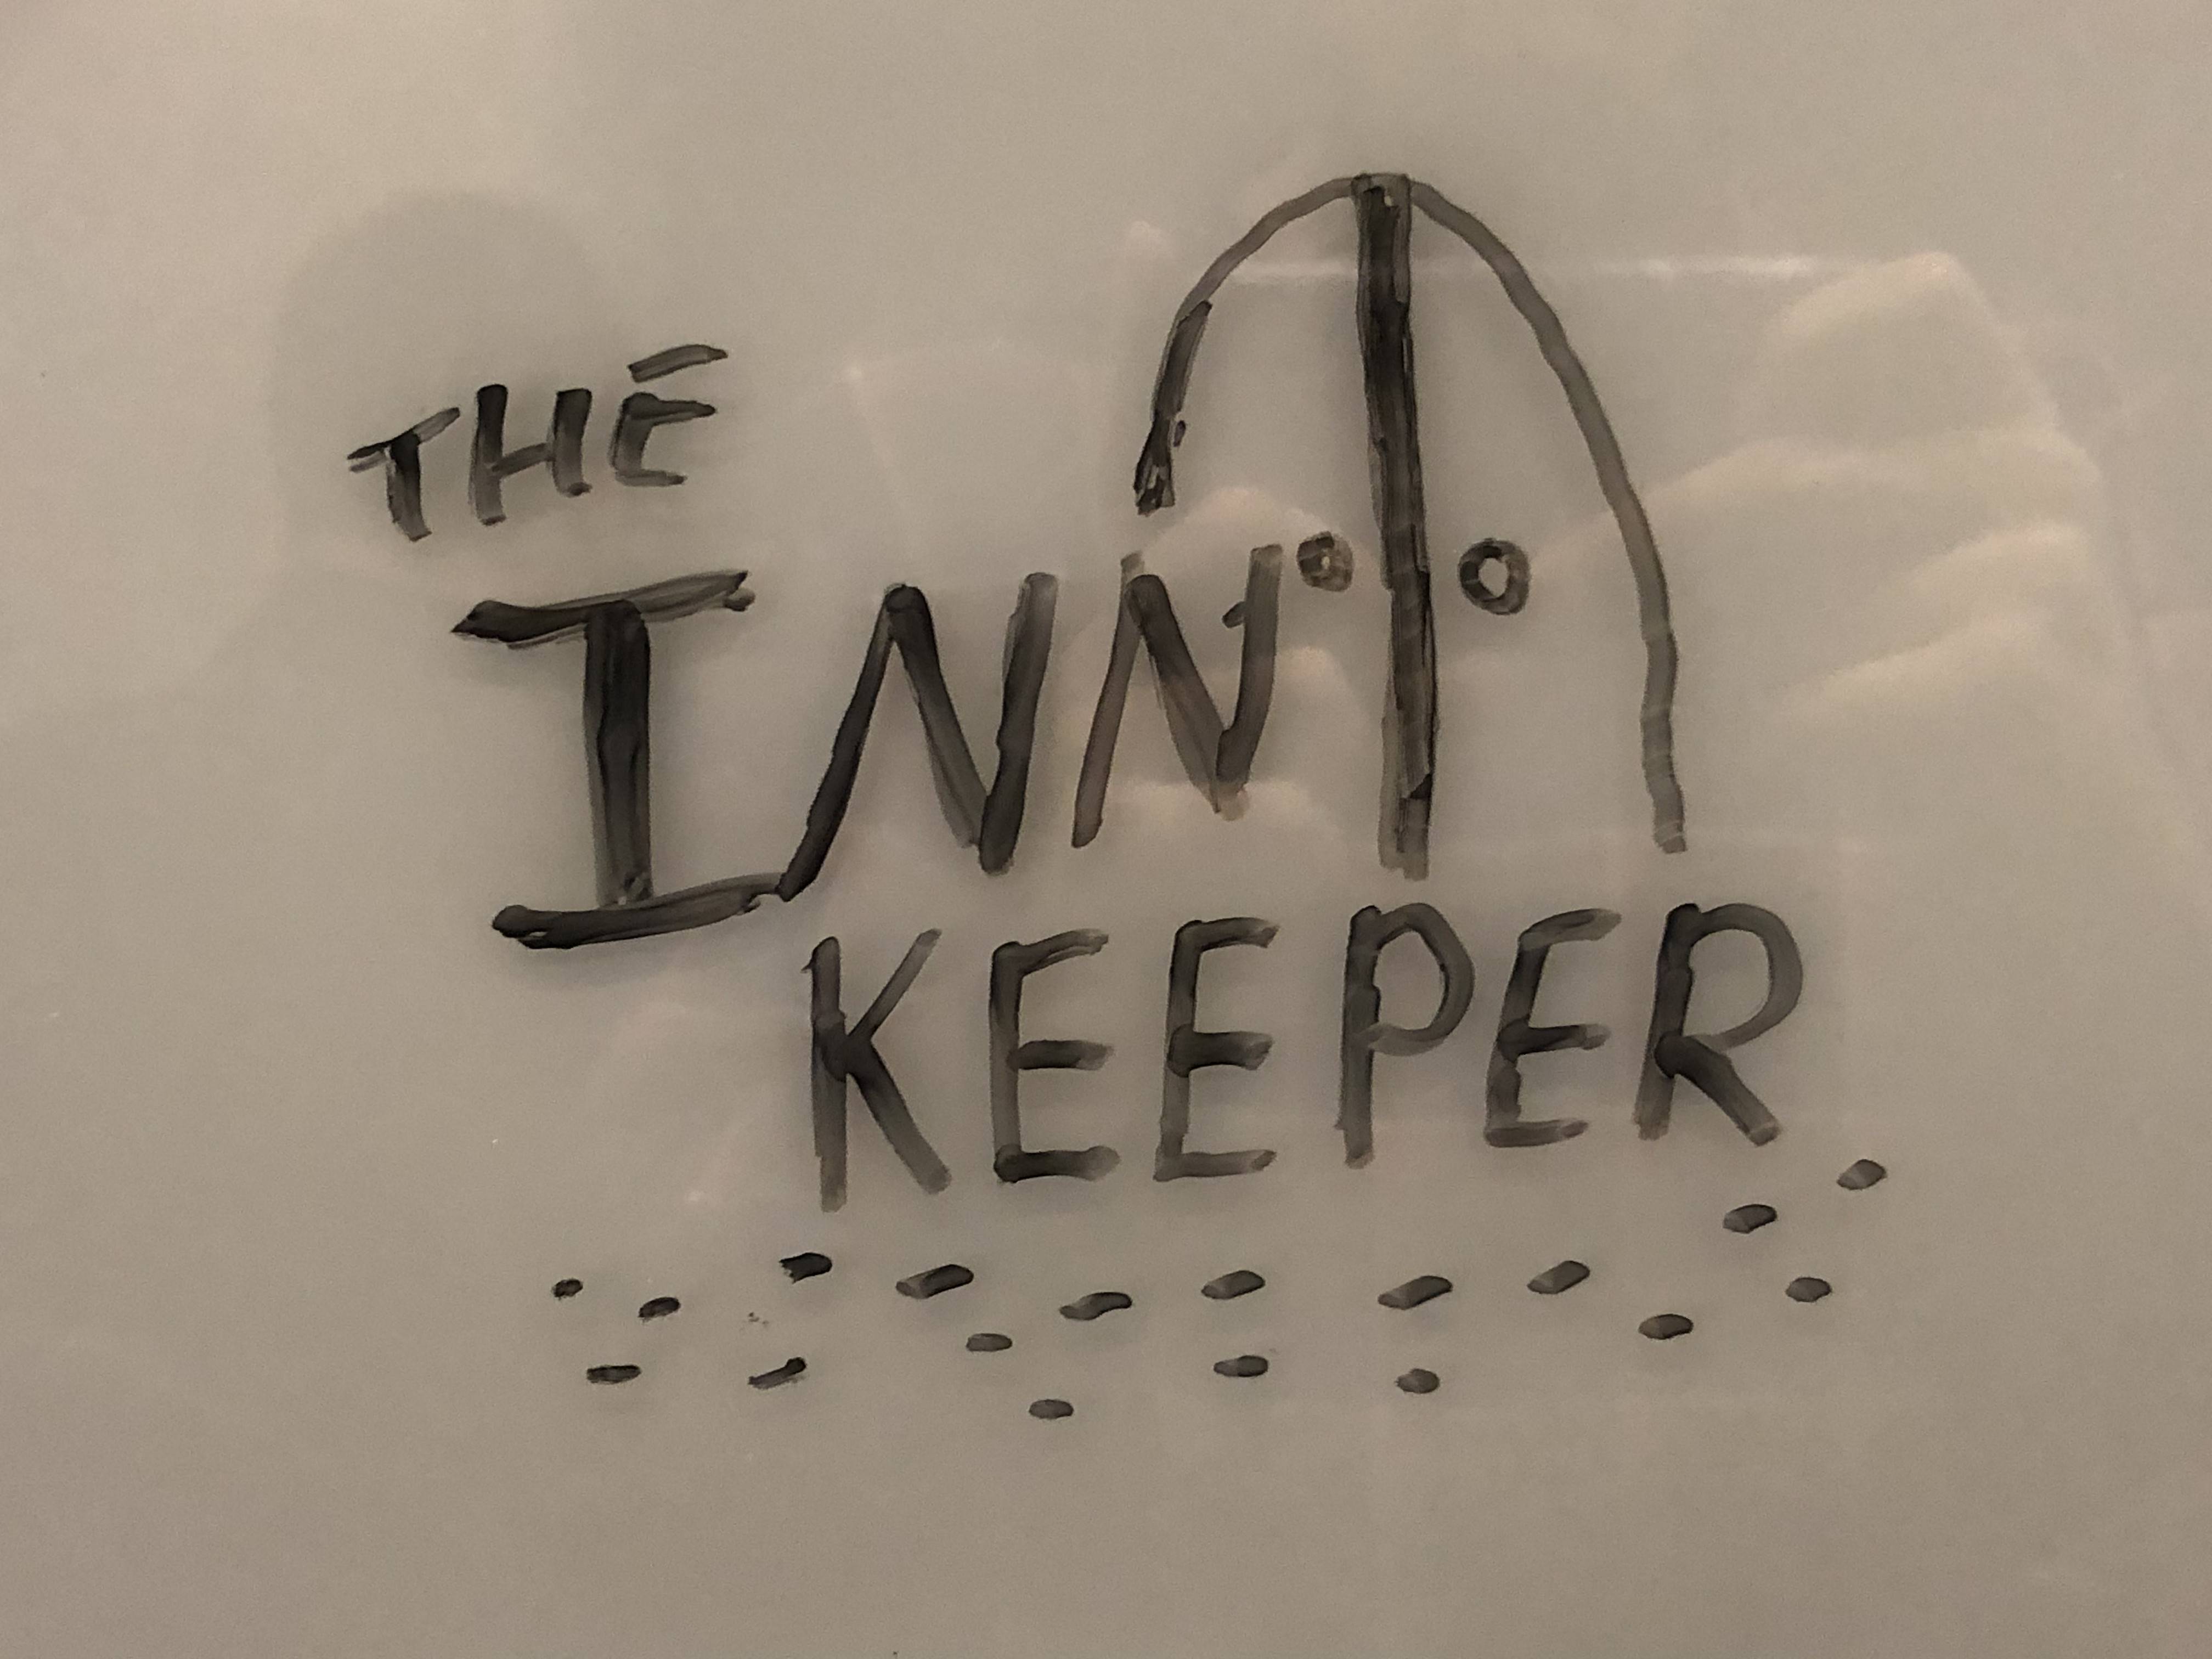 THE
INN
KEEPER